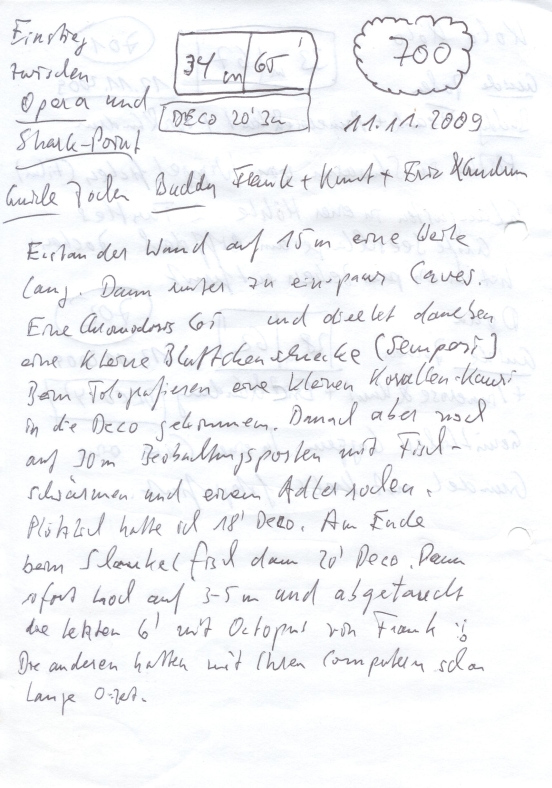 Einstieg
zwischen
Opera und
Shark-Point
34 m 65'
DECO 20' 3m
700
11.11.2009
Guide Buddy Frank + Knut +
Erst an der Wand auf 15m eine Weile
lang. Dann unter zu ein paar Caves.
Eine Chromodoris und direkt daneben
eine kleine
Beim Fotografieren eine kleinen Korallen-Kauri
in die Deco gekommen. Danach aber noch
auf 30m Beobachtungsposten mit Fisch-
schwärmen und einem Adlerrochen.
Plötzlich hatte ich 18' Deco. Am Ende
beim dann 20' Deco. Dann
sofort hoch auf 3-5m und abgetaucht
die letzten 6' mit Octopus von Frank
Die anderen hatten mit Ihren Computern schon
lange 0-zeit.